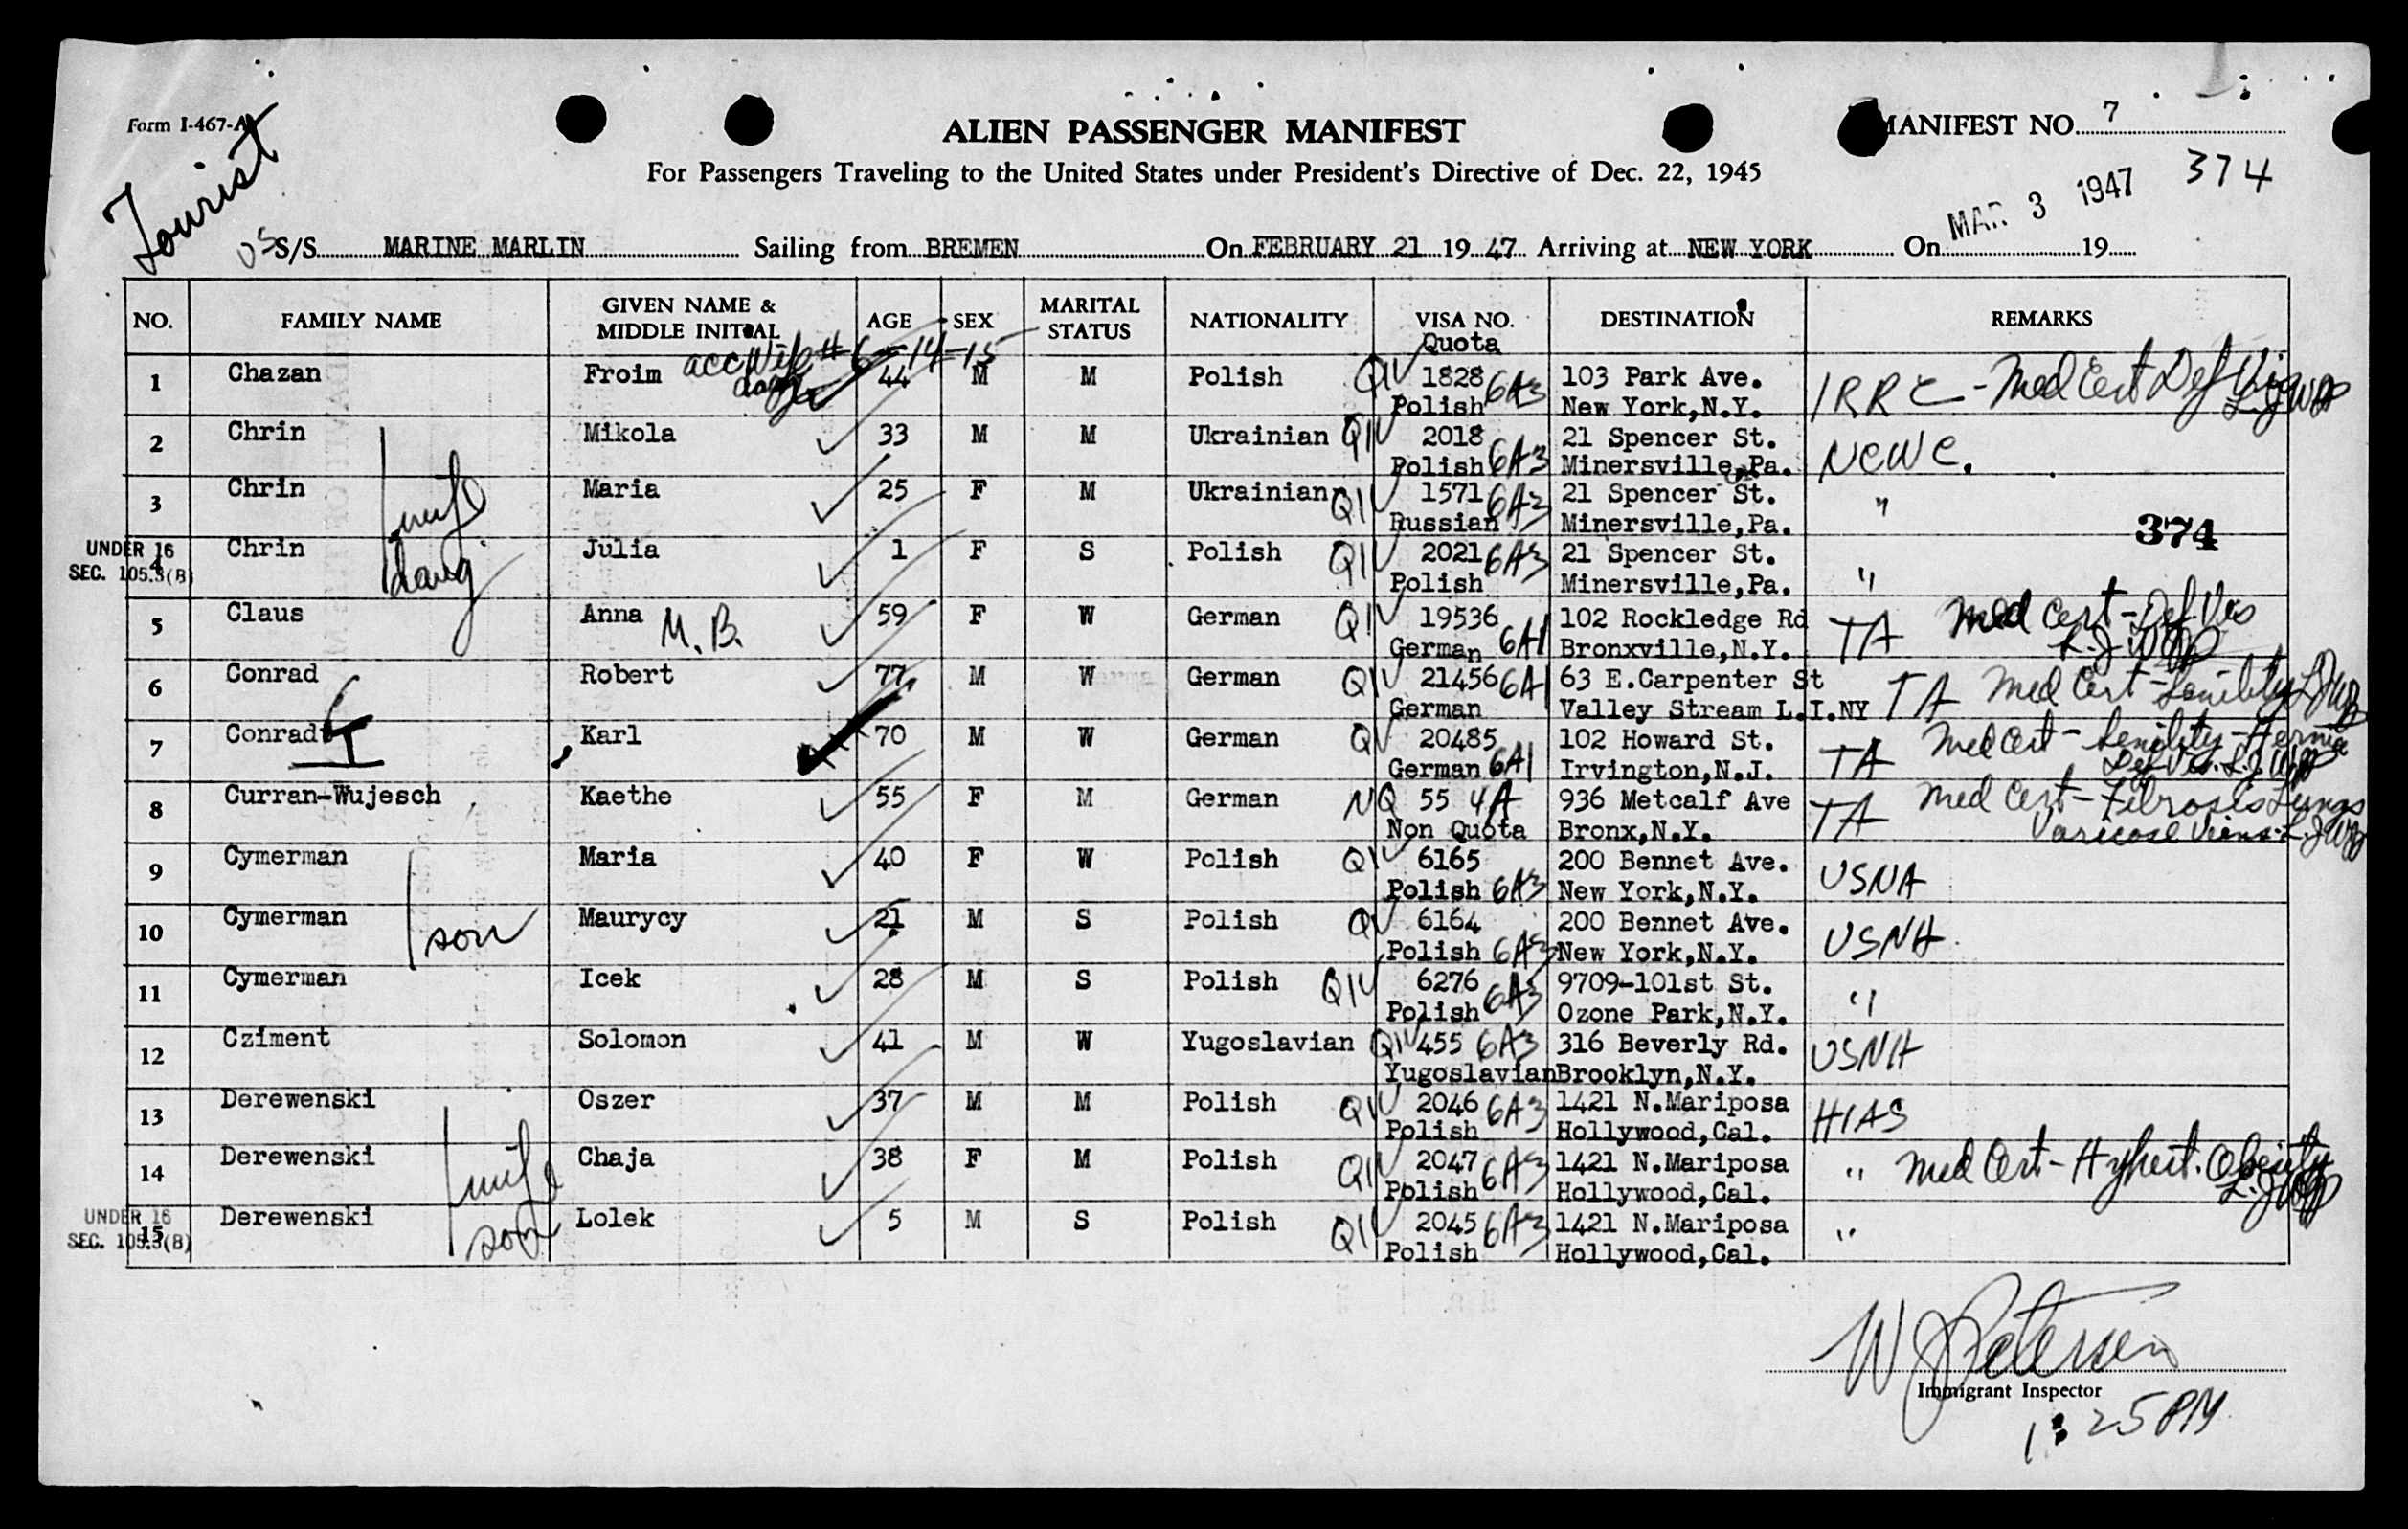 Form I-467-A
Tourist
ALIEN PASSENGER MANIFEST
MANIFEST NO. 7
For Passengers Traveling to the United States under President's Directive of Dec. 22, 1945
374
MAR 3 1947
US S/S MARINE MARLIN Sailing from BREMEN On FEBRUARY 21 19 47 Arriving at NEW YORK On 19
NO. FAMILY NAME GIVEN NAME & MIDDLE INITIAL AGE SEX MARITAL STATUS NATIONALITY VISA NO. Quota DESTINATION REMARKS
acc wife # 6-14-15
1 Chazan Froim 44 M M Polish QIV 1828 6A3 103 Park Ave. IRRC - Med Cert Def Vis
Polish New York,N.Y.
2 Chrin Mikola 33 M M Ukrainian QIV 2018 21 Spencer St. NCWC.
Polish 6A3 Minersville,Pa.
3 Chrin wife Maria 25 F M Ukrainian QIV 1571 6A3 21 Spencer St. "
Russian Minersville,Pa.
374
UNDER 16
SEC. 105.3(B)
4 Chrin daug Julia 1 F S Polish QIV 2021 6A3 21 Spencer St. "
Polish Minersville,Pa.
5 Claus Anna M.B. 59 F W German QIV 19536 102 Rockledge Rd TA Med Cert - Def Vis
German 6A1 Bronxville,N.Y.
6 Conrad Robert 77 M W German QIV 21456 6A1 63 E.Carpenter St TA Med Cert - Senility
German Valley Stream L.I.NY
7 Conradt Karl 70 M W German QV 20485 102 Howard St. TA Med Cert - Senility - Hernia
German 6A1 Irvington,N.J. Def Vis.
8 Curran-Wujesch Kaethe 55 F M German NQ 55 4A 936 Metcalf Ave TA Med Cert - Fibrosis Lungs
Non Quota Bronx,N.Y. Varicose Viens
9 Cymerman Maria 40 F W Polish QIV 6165 200 Bennet Ave. USNA
Polish 6A3 New York,N.Y.
10 Cymerman son Maurycy 21 M S Polish QV 6164 200 Bennet Ave. USNA
Polish 6A3 New York,N.Y.
11 Cymerman Icek 28 M S Polish QIV 6276 9709-101st St. "
Polish 6A3 Ozone Park,N.Y.
12 Cziment Solomon 41 M W Yugoslavian QIV 455 6A3 316 Beverly Rd. USNA
Yugoslavian Brooklyn,N.Y.
13 Derewenski Oszer 37 M M Polish QIV 2046 6A3 1421 N.Mariposa HIAS
Polish Hollywood,Cal.
14 Derewenski wife Chaja 38 F M Polish QIV 2047 6A3 1421 N.Mariposa " Med Cert - Hypert. Obesity
Polish Hollywood,Cal.
UNDER 16
SEC. 105.3(B)
15 Derewenski son Lolek 5 M S Polish QIV 2045 6A3 1421 N.Mariposa "
Polish Hollywood,Cal.
W J Petersen
Immigrant Inspector
1:25 PM